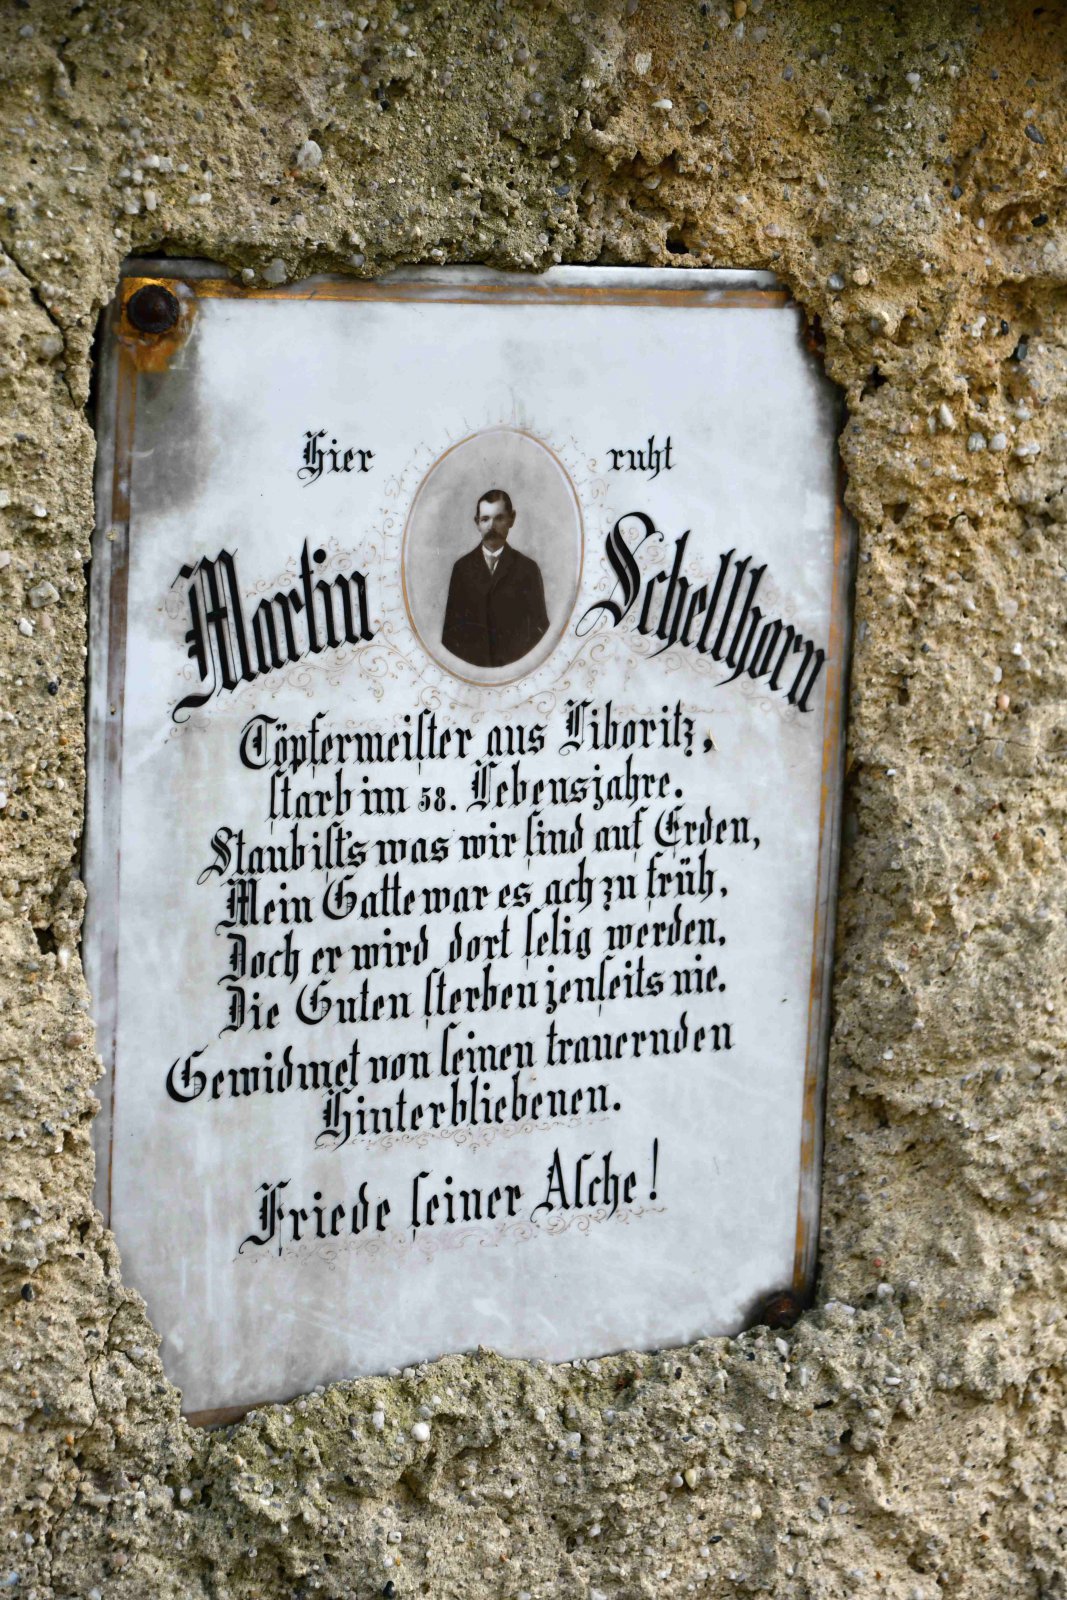 Hier ruht
Martin Schellhorn
Töpfermeister aus Liboritz,
starb im 58. Lebensjahre.
Staub ist's was wir sind auf Erden,
Mein Gatte war es ach zu früh,
Doch er wird dort selig werden,
Die Guten sterben jenseits nie.
Gewidmet von seinen trauernden
Hinterbliebenen.
Friede seiner Asche!